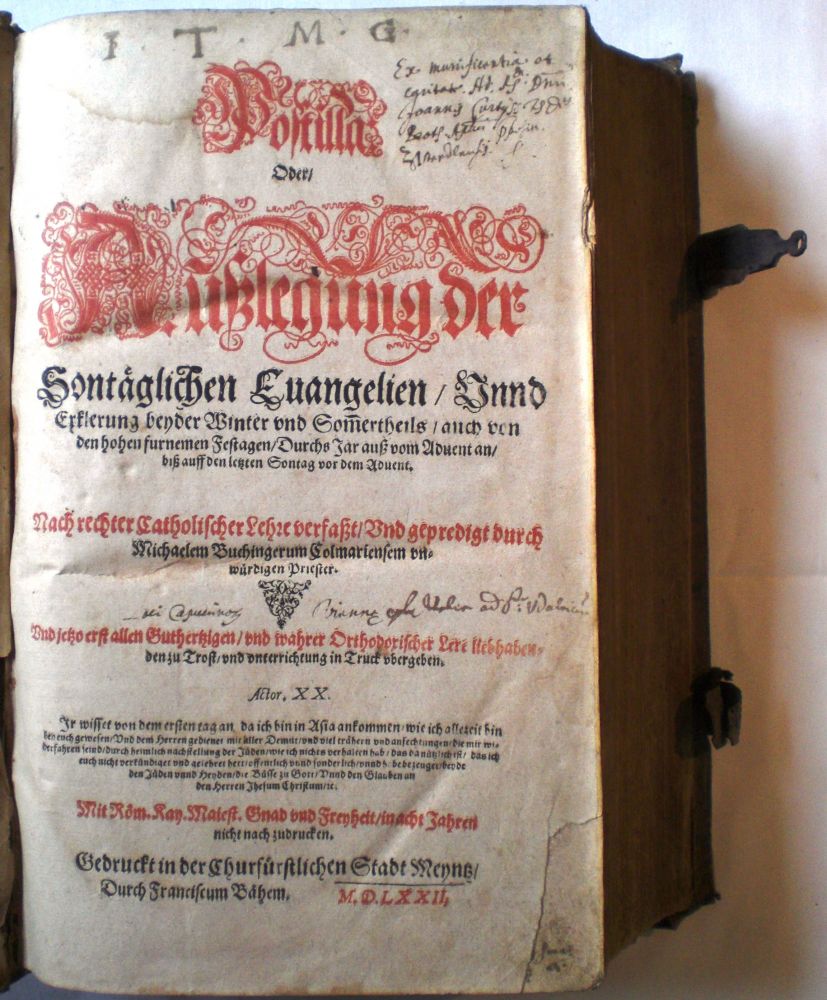 I · T · M · G ·
Ex munificentia et
Postilla
Oder/
Außlegung der
Sontäglichen Euangelien / Vnnd
Erklerung beyder Winter vnd Som̃ertheils / auch von
den hohen furnemen Festagen/Durchs Jar auß vom Aduent an/
biß auff den letzten Sontag vor dem Aduent.
Nach rechter Catholischer Lehre verfaßt/Vnd gepredigt durch
Michaelem Buchingerum Colmariensem vn-
würdigen Priester.
Viennæ ad S.
Vnd jetzo erst allen Guthertzigen/vnd wahrer Orthodoxischer Lere liebhaben-
den zu Trost/vnd vnterrichtung in Truck vbergeben.
Actor. XX.
Ir wisset von dem ersten tag an, da ich bin in Asia ankommen/wie ich allezeit bin
bey euch gewesen/Vnd dem Herren gedienet mit aller Demut/vnd viel trähern vnd anfechtungen/die mir wi-
derfahren seind/durch heimlich nachstellung der Jüden/wie ich nichts verhalten hab/das da nützlich ist/das ich
euch nicht verkündiget vnd gelehret hett/offentlich vnnd sonderlich/vnnd hab bezeuget/beyde
den Jüden vnnd Heyden/die Büsse zu Gott/Vnnd den Glauben an
den Herren Jhesum Christum/ec.
Mit Röm. Kay. Maiest. Gnad vnd Freyheit/in acht Jahren
nicht nach zudrucken.
Gedruckt in der Churfürstlichen Stadt Meyntz/
Durch Franciscum Bähem. M.D.LXXII.